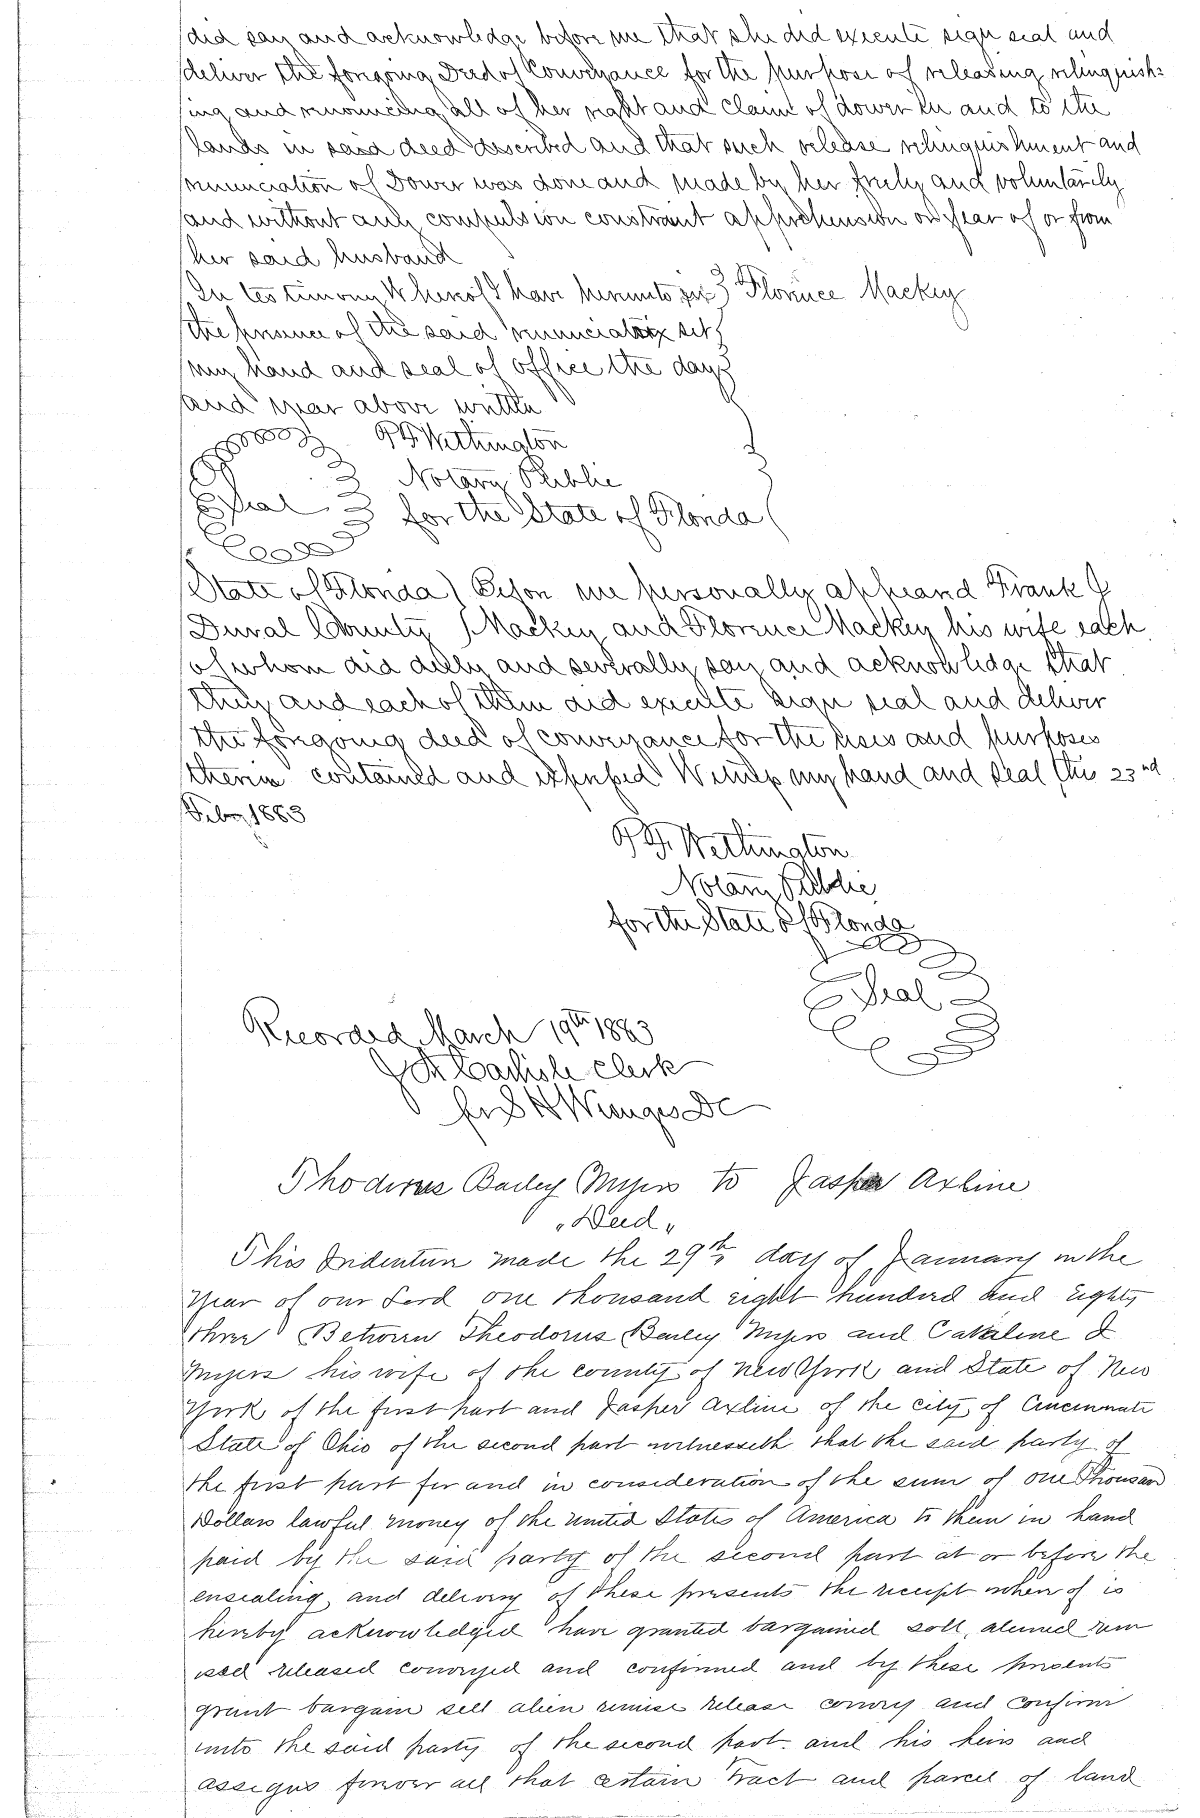 did say and acknowledge before me that she did execute sign seal and
deliver the forgoing Deed of Conveyance for the purpose of releasing relinquish=
ing and renouncing all of her right and claim of dower in and to the
lands in said deed described and that such release relinquishment and
renunciation of Dower was done and made by her freely and voluntarily
and without any compulsion constraint apprehension or fear of or from
her said husband
In testimony Whereof I have hereunto in } Florence Mackey
the presence of the said renunciatrix set }
my hand and seal of office the day }
and year above written
Wethington
Notary Public
Seal for the State of Florida
State of Florida ) Before me personally appeared Frank J
Duval County ) Mackey and Florence Mackey his wife each
of whom did duly and severally say and acknowledge that
they and each of them did execute sign seal and deliver
the forgoing deed of conveyance for the uses and purposes
therein contained and expressed Witness my hand and seal this 23rd
Feby 1883
Wethington
Notary Public
for the State of Florida
Seal
Recorded March 19th 1883
Carlisle Clerk
DC
Thodorus Bailey Myers to Jasper Axline
"Deed"
This Indenture made the 29th day of January in the
Year of our Lord one thousand eight hundred and Eighty
three Between Theodorus Bailey Myers and Cataline
Myers his wife of the county of New York and State of New
York of the first part and Jasper Axline of the city of Cincinnati
State of Ohio of the second part witnesseth that the said party of
the first part for and in consideration of the sum of one Thousand
Dollars lawful money of the United States of America to them in hand
paid by the said party of the second part at or before the
ensealing and delivery of these presents the receipt where of is
hereby acknowledged have granted bargained sold, aliened rem
ised released conveyed and confirmed and by these presents
grant bargain sell alien remise release convey and confirm
unto the said party of the second part. and his heirs and
assigns forever all that certain tract and parcel of land